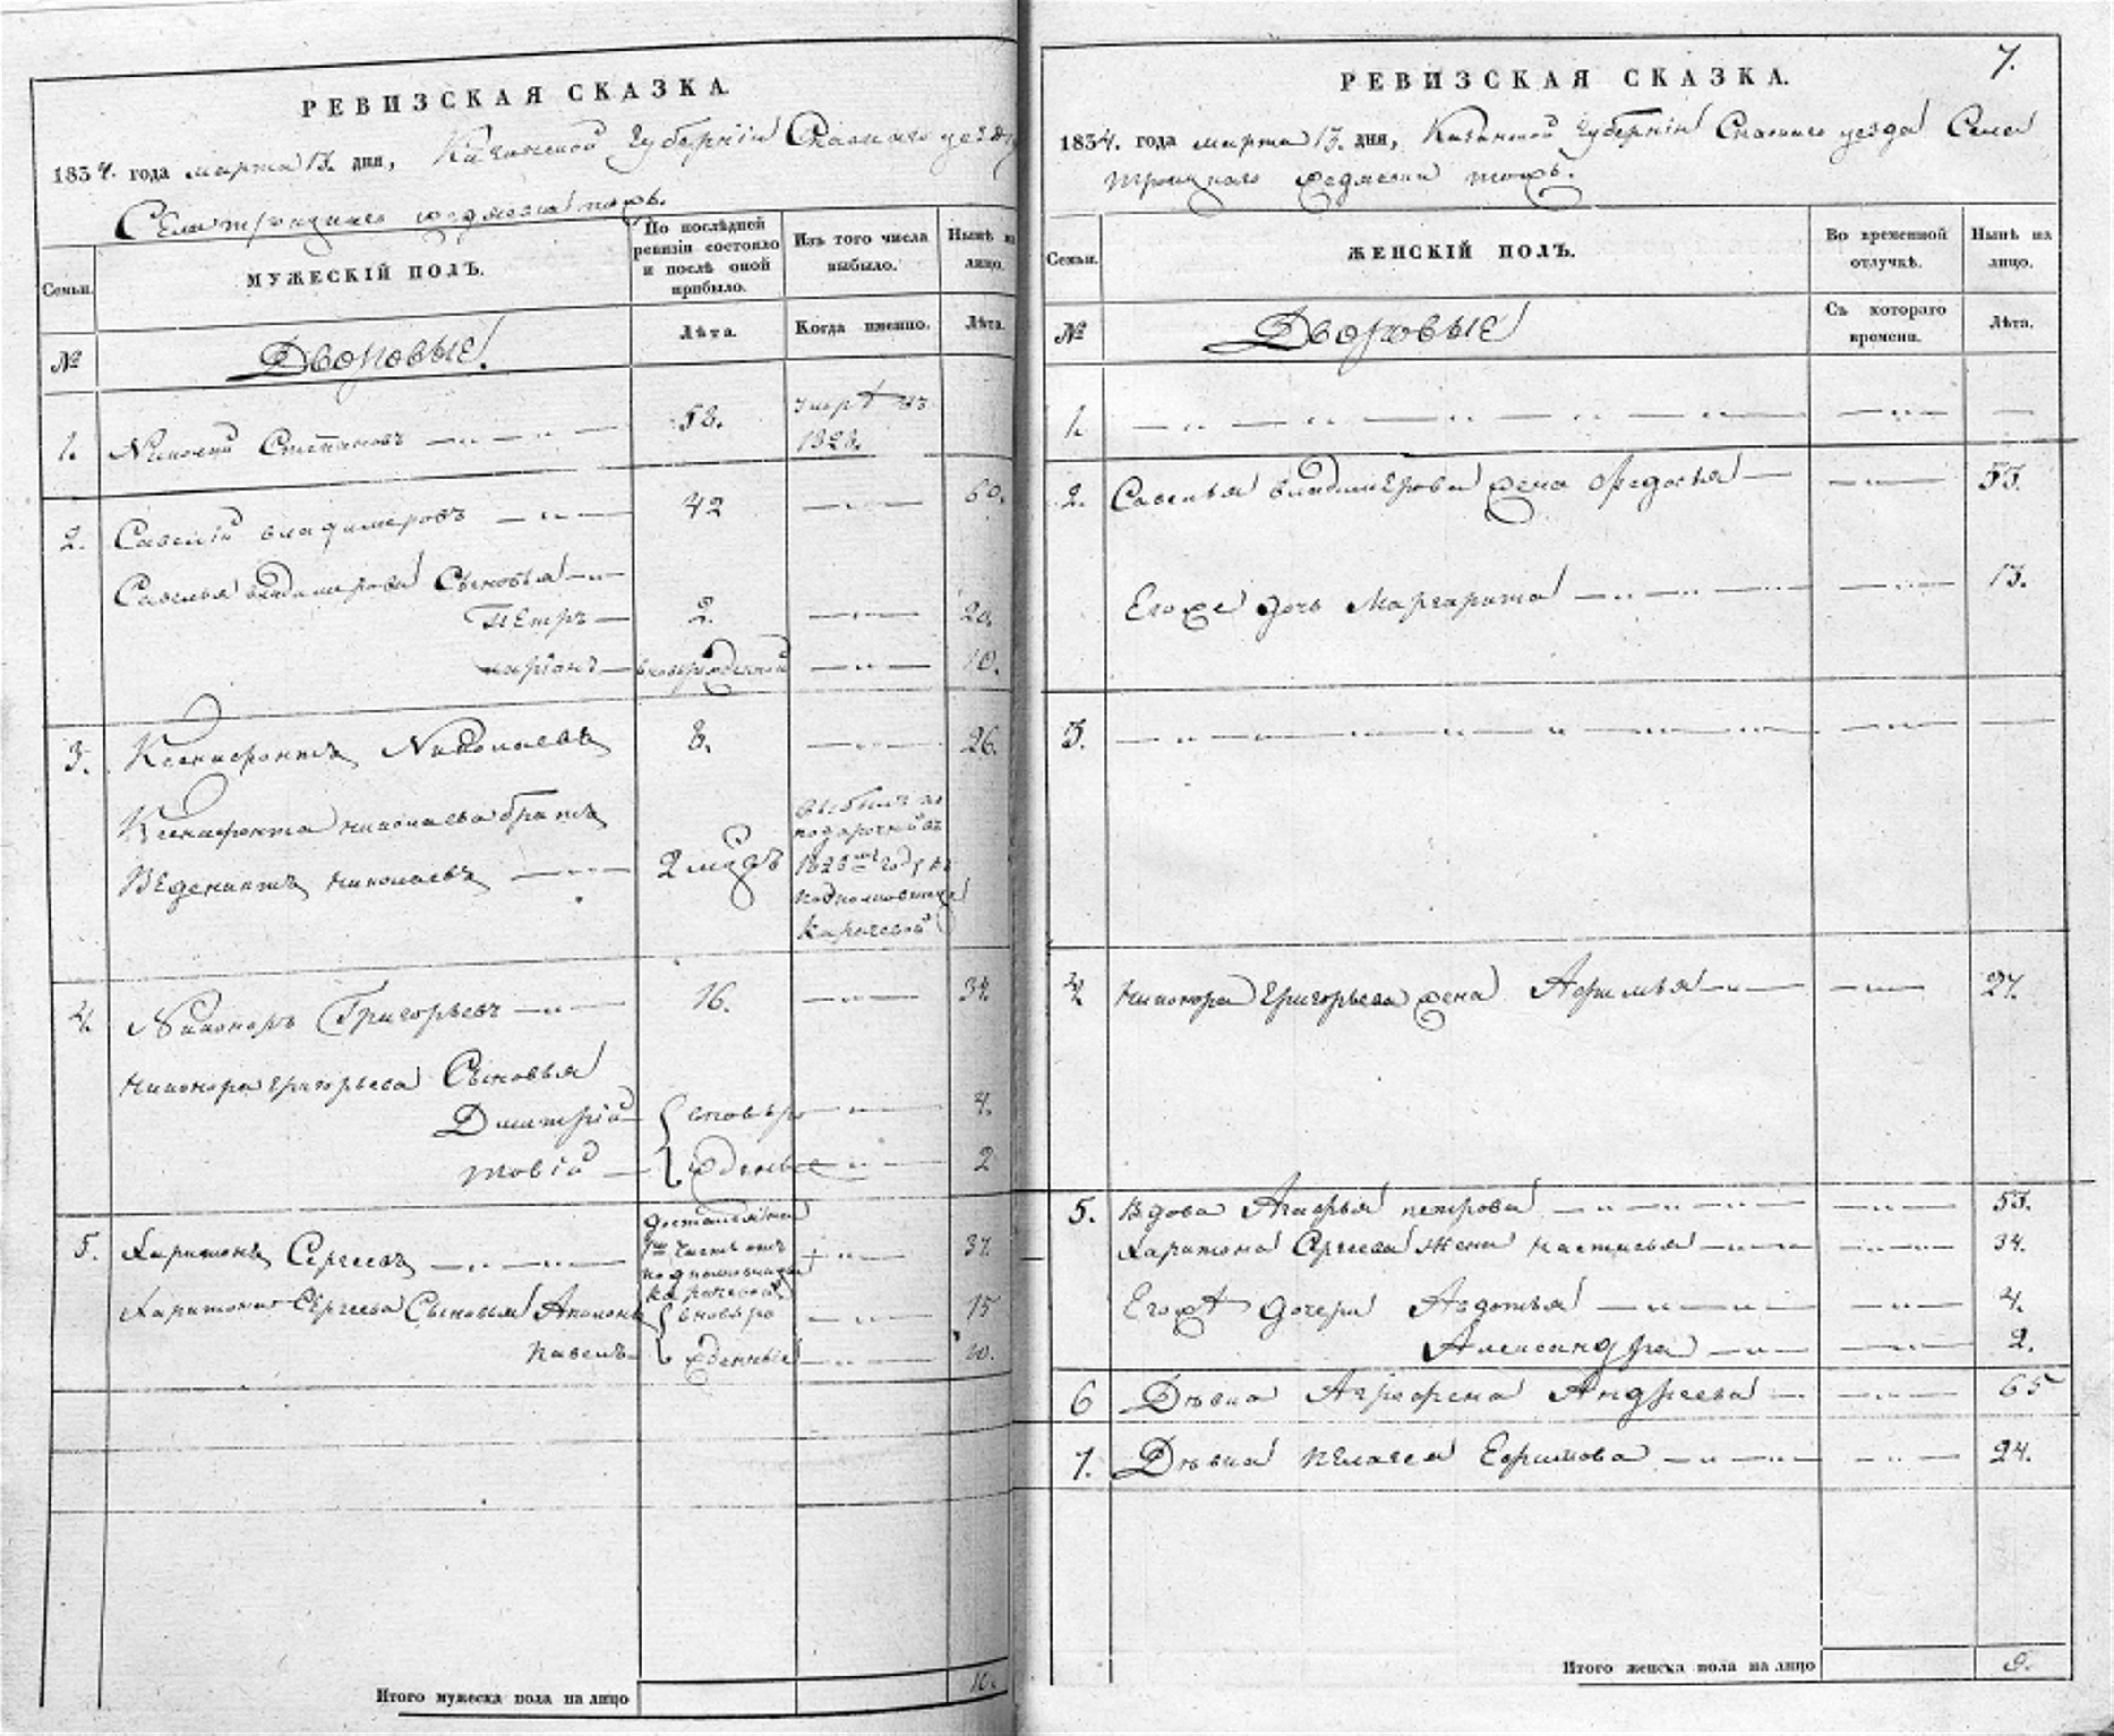 РЕВИЗСКАЯ СКАЗКА.
1834. года марта 13. дня, Казанской Губернiи Спаскаго уезда
Села троицкаго тожъ.
Семьи.
МУЖЕСКІЙ ПОЛЪ.
По послѣдней ревизіи состояло и послѣ оной прибыло.
Изъ того числа выбыло.
Нынѣ на лицо.
№
Дворовые.
Лѣта.
Когда именно.
Лѣта.
1. Степановъ 58. 1828.
2. Савелiй владимеровъ 42 60.
Савелья владимерова Сыновья
Петръ 2. 20.
10.
3. Ксенофонтъ Николаевъ 8. 26.
Ксенофонта николаева братъ
николаевъ 2 мѣ
выбылъ по
1826 году къ
подполковнице
4. Никоноръ Григорьевъ 16. 34
Никонора григорьева Сыновья
Дмитрiй вновь ро 4.
товiй жденные 2
5. Харитонъ Сергеевъ 37.
доставшiйся
подполковницы
Харитона Сергеева Сыновья вновь ро 15
Павелъ жденные 10.
Итого мужеска пола на лицо 10.
7.
РЕВИЗСКАЯ СКАЗКА.
1834. года марта 13. дня, Казанской губернiи Спаскаго уезда Села
троицкаго тожъ.
Семьи.
ЖЕНСКІЙ ПОЛЪ.
Во временной отлучкѣ.
Нынѣ на лицо.
№
Дворовые
Съ котораго времени.
Лѣта.
1.
2. Савелья владимерова жена Федосья 53.
Егоже дочь Маргарита 13.
3.
4. Никонора григорьева жена 27.
5. Вдова петрова 53.
Харитона Сергеева Жена настасья 34.
Егоже дочери Авдотья 4.
Александра 2.
6 Дѣвка Аграфена Андреева 65
7. Дѣвка Пелагея Ефимова 24.
Итого женска пола на лицо 9.